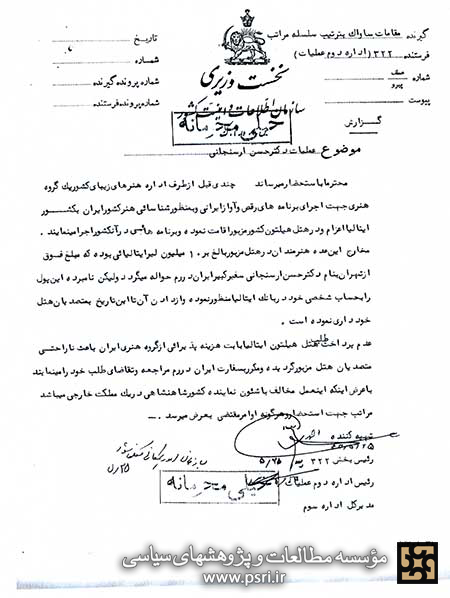 گیرنده مقامات ساواک بترتیب سلسله مراتب
فرستنده ۳۲۲ (اداره دوم عملیات)
شماره عطف پیرو
پیوست
گزارش
تاریخ
شماره
شماره پرونده گیرنده
شماره پرونده فرستنده
نخست وزیری
سازمان اطلاعات و امنیت کشور
خیلی محرمانه
موضوع عملیات دکتر حسن ارسنجانی
محترما باستحضار میرساند چندی قبل از طرف اداره هنرهای زیبای کشور یک گروه
هنری جهت اجرای برنامه های رقص و آواز ایرانی و بمنظور شناسائی هنر کشور ایران بکشور
ایتالیا اعزام و در هتل هیلتون کشور مزبور اقامت نموده و برنامه هائی در آنکشور اجرا مینمایند .
مخارج این عده هنرمندان در هتل مزبور بالغ بر ۱۰ میلیون لیر ایتالیائی بوده که مبلغ فوق
از تهران بنام دکتر حسن ارسنجانی سفیر کبیر ایران در رم حواله میگردد ولیکن نامبرده این پول
را بحساب شخصی خود در بانک ایتالیا منظور نموده و از دادن آن تا این تاریخ بمتصدیان هتل
خودداری نموده است .
عدم پرداخت طلب هتل هیلتون ایتالیا بابت هزینه پذیرائی از گروه هنری ایران باعث ناراحتی
متصدیان هتل مزبور گردیده و مکرر بسفارت ایران در رم مراجعه و تقاضای طلب خود را مینمایند
با عرض اینکه اینعمل مخالف با شئون نماینده کشور شاهنشاهی در یک مملکت خارجی میباشد
مراتب جهت استحضار و هرگونه اوامر مقتضی بعرض میرسد .
تهیه کننده
رئیس بخش ۳۲۲
رئیس اداره دوم عملیات
خیلی محرمانه
مدیرکل اداره سوم
مؤسسه مطالعات و پژوهشهای سیاسی
www.psri.ir